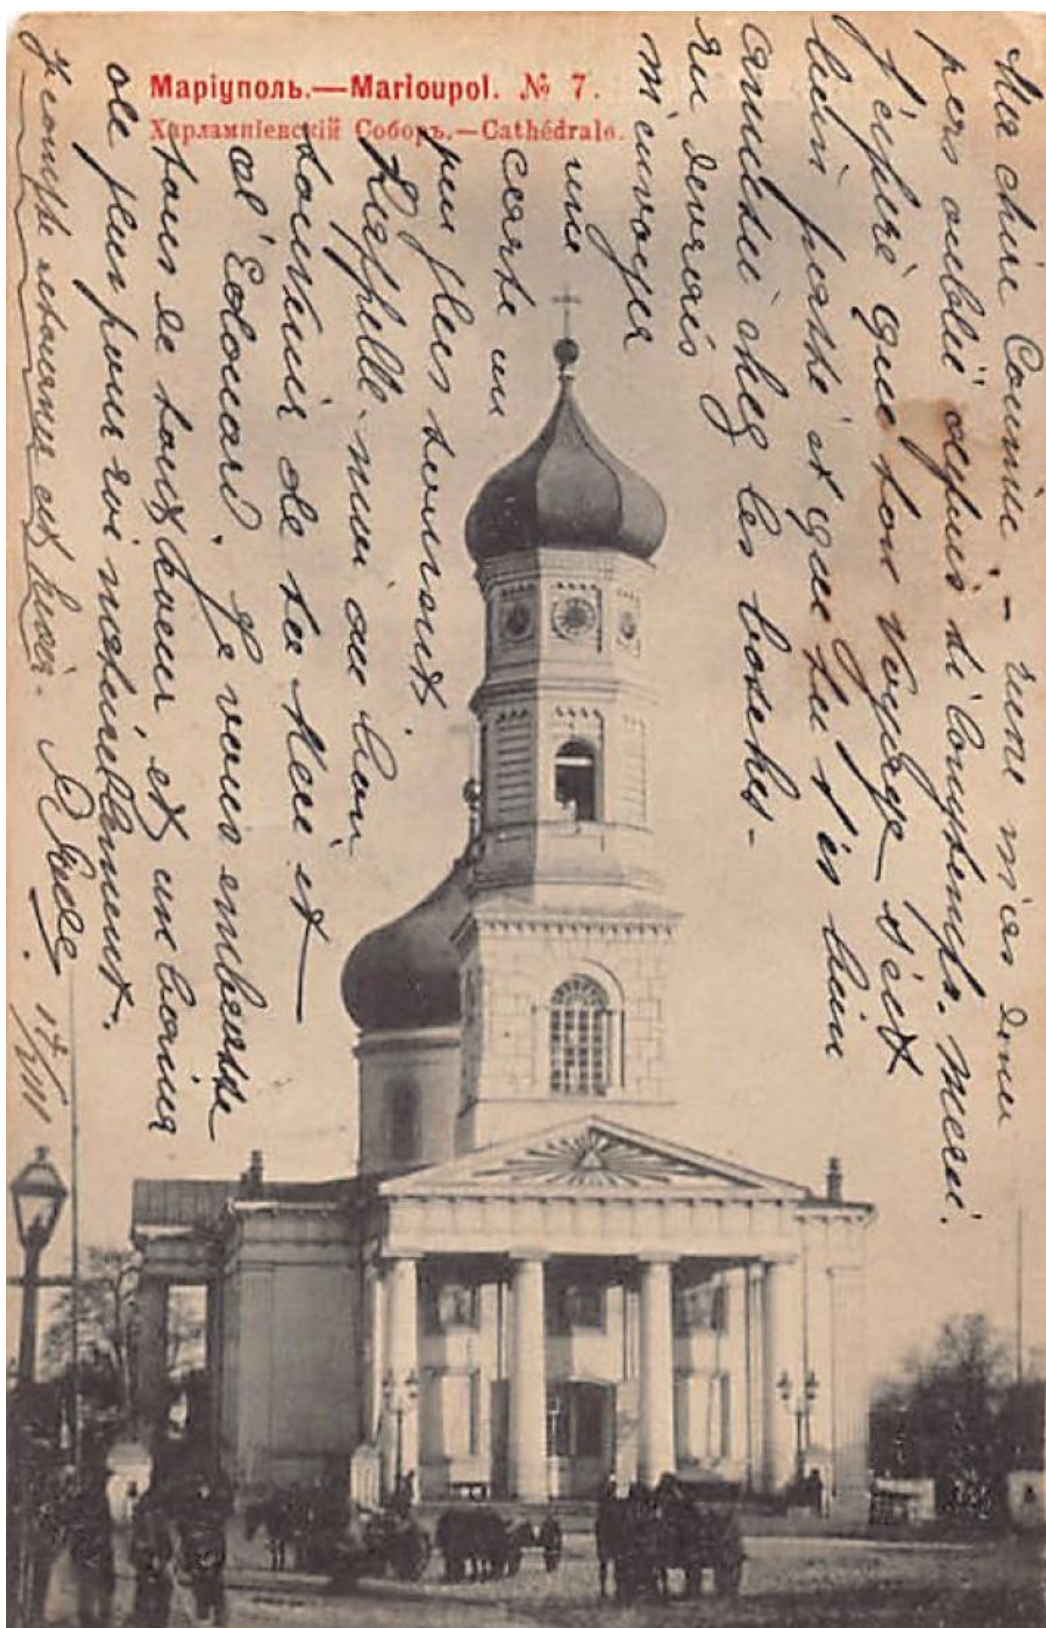 Маріуполь.—Marioupol. № 7.
Харлампіевскій Соборъ.—Cathédrale.
Ma chère Cousine. – Tu ne m'as donc
pas oublié depuis si longtemps. Merci.
J'espère que ton voyage s'est
bien passé et que tu t'es bien
amusée chez les boches –
Tu devrais
m'envoyer
une
carte un
peu plus souvent.
Rappelle-moi au bon
souvenir de ta mère et
d'Edouard. Je vous embrasse
tous de tout coeur, et un baiser
de plus pour toi naturellement.
Je compte retourner cet hiver.